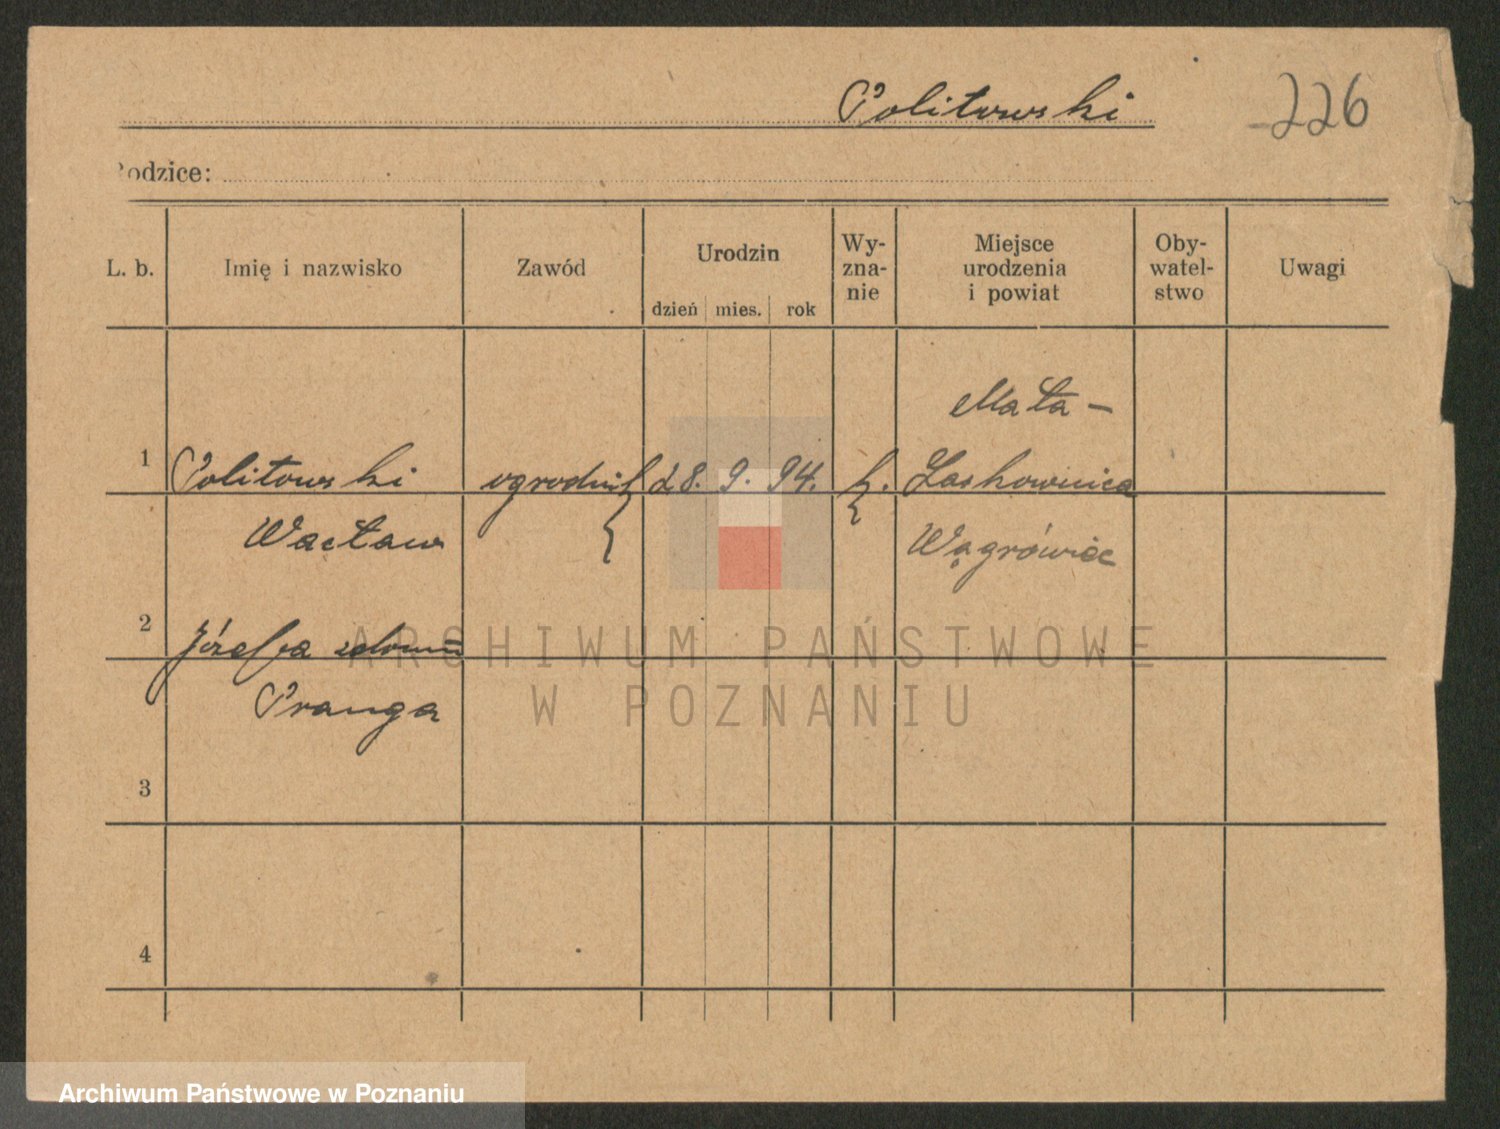 Politowski
226
Rodzice:
L. b.
Imię i nazwisko
Zawód
Urodzin
dzień mies. rok
Wy-
zna-
nie
Miejsce
urodzenia
i powiat
Oby-
watel-
stwo
Uwagi
1 Politowski ogrodnik 28. 9. 94. k.
Wacław
Mała-
Laskownica
Wągrówiec
2 Józefa z domu
Pranga
3
4
ARCHIWUM PAŃSTWOWE
W POZNANIU
Archiwum Państwowe w Poznaniu